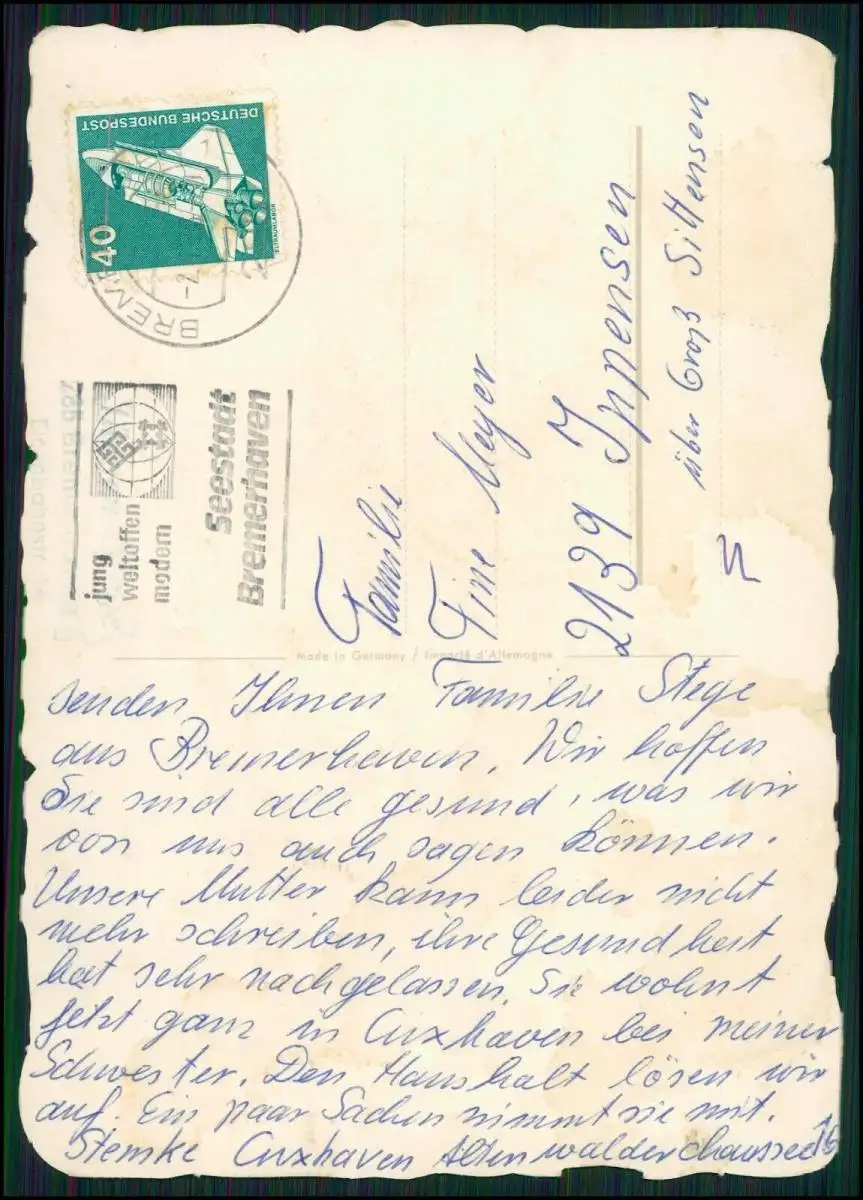 DEUTSCHE BUNDESPOST
40
WELTRAUMLABOR
jung
weltoffen
modern
Seestadt
Bremerhaven
Familie
Fine Meyer
2139 Ippensen
über Groß Sittensen
Made in Germany / Importé d'Allemagne
senden Ihnen Familie Stege
aus Bremerhaven. Wir hoffen
Sie sind alle gesund, was wir
von uns auch sagen können.
Unsere Mutter kann leider nicht
mehr schreiben, ihre Gesundheit
hat sehr nachgelassen. Sie wohnt
jetzt ganz in Cuxhaven bei meiner
Schwester. Den Haushalt lösen wir
auf. Ein paar Sachen nimmt sie mit.
Stemke Cuxhaven Altenwalder chaussee